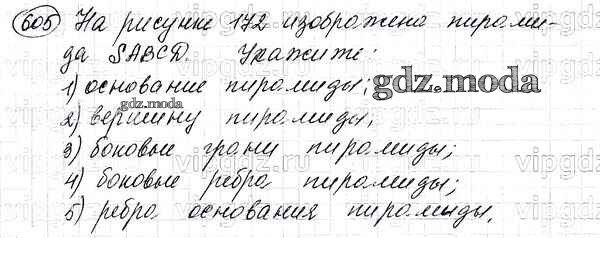 605 На рисунке 172 изображена пирами-
да SABCD. Укажите:
1) основание пирамиды;
gdz.moza
gdz.moza
2) вершину пирамиды;
3) боковые грани пирамиды;
4) боковые ребра пирамиды;
5) ребра основания пирамиды.